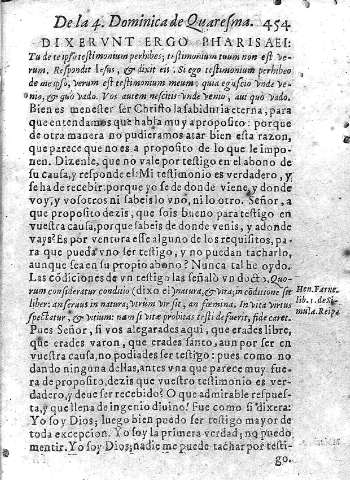 De la 4. Dominica de Quaresma. 454
DIXERVNT ERGO PHARISAEI:
Tu de te ipso testimonium perhibes; testimonium tuum non est ve-
rum. Respondit Iesus, & dixit eis. Si ego testimonium perhibeo
de me ipso, verum est testimonium meum: quia ego scio vnde ve-
nio, & quò vado. Vos autem nescitis vnde venio, aut quò vado.
Bien es menester ser Christo la sabiduria eterna, para
que entendamos que habla muy a proposito: porque
de otra manera no pudieramos atar bien esta razon,
que parece que no es a proposito de lo que le impo-
nen. Dizenle, que no vale por testigo en el abono de
su causa, y responde el: Mi testimonio es verdadero, y
se ha de recebir, porque yo se de donde viene, y donde
voy, y vosotros ni sabeis lo vno, ni lo otro. Señor, a
que proposito dezis, que sois bueno para testigo en
vuestra causa, porque sabeis de donde venis, y adonde
vays? Es por ventura esse alguno de los requisitos, pa-
ra que pueda vno ser testigo, y no puedan tacharlo,
aunque sea en su propio abono? Nunca tal he oydo.
Las cōdiciones de vn testigo las señalò vn docto. Quo-
rum consideratur conditio (dixo el) natura, & vita; in cōditione
liber: an seruus in natura; vtrum vir sit, an fœmina. In vita virtus
spectatur, & vitium: nam si vitæ probitas testi defuerit, fide caret.
Pues Señor, si vos alegarades aqui, que erades libre,
que erades varon, que erades santo, aun por ser en
vuestra causa, no podiades ser testigo: pues como no
dando ninguna dellas, antes vna que parece muy fue-
ra de proposito, dezis que vuestro testimonio es ver-
dadero, y deue ser recebido? O que admirable respues-
ta, y que llena de ingenio diuino! Fue como si dixera:
Yo soy Dios; luego bien puedo ser testigo mayor de
toda excepcion. Yo soy la primera verdad; no puedo
mentir. Yo soy Dios; nadie me puede tachar por testi-
go.
lib. 1. de Si-